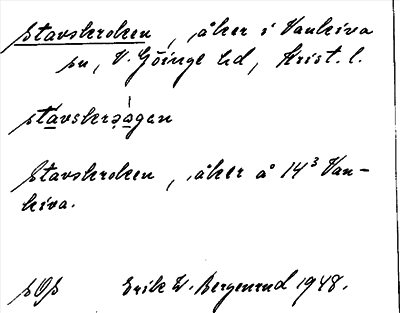 Stavskroken, åker i Vankiva
sn, V. Göinge hd, Krist. l.
stavskrǫ̀ǵan
Stavskroken, åker å 14³ Van-
kiva.
Erik W. Bergenrud 1948.